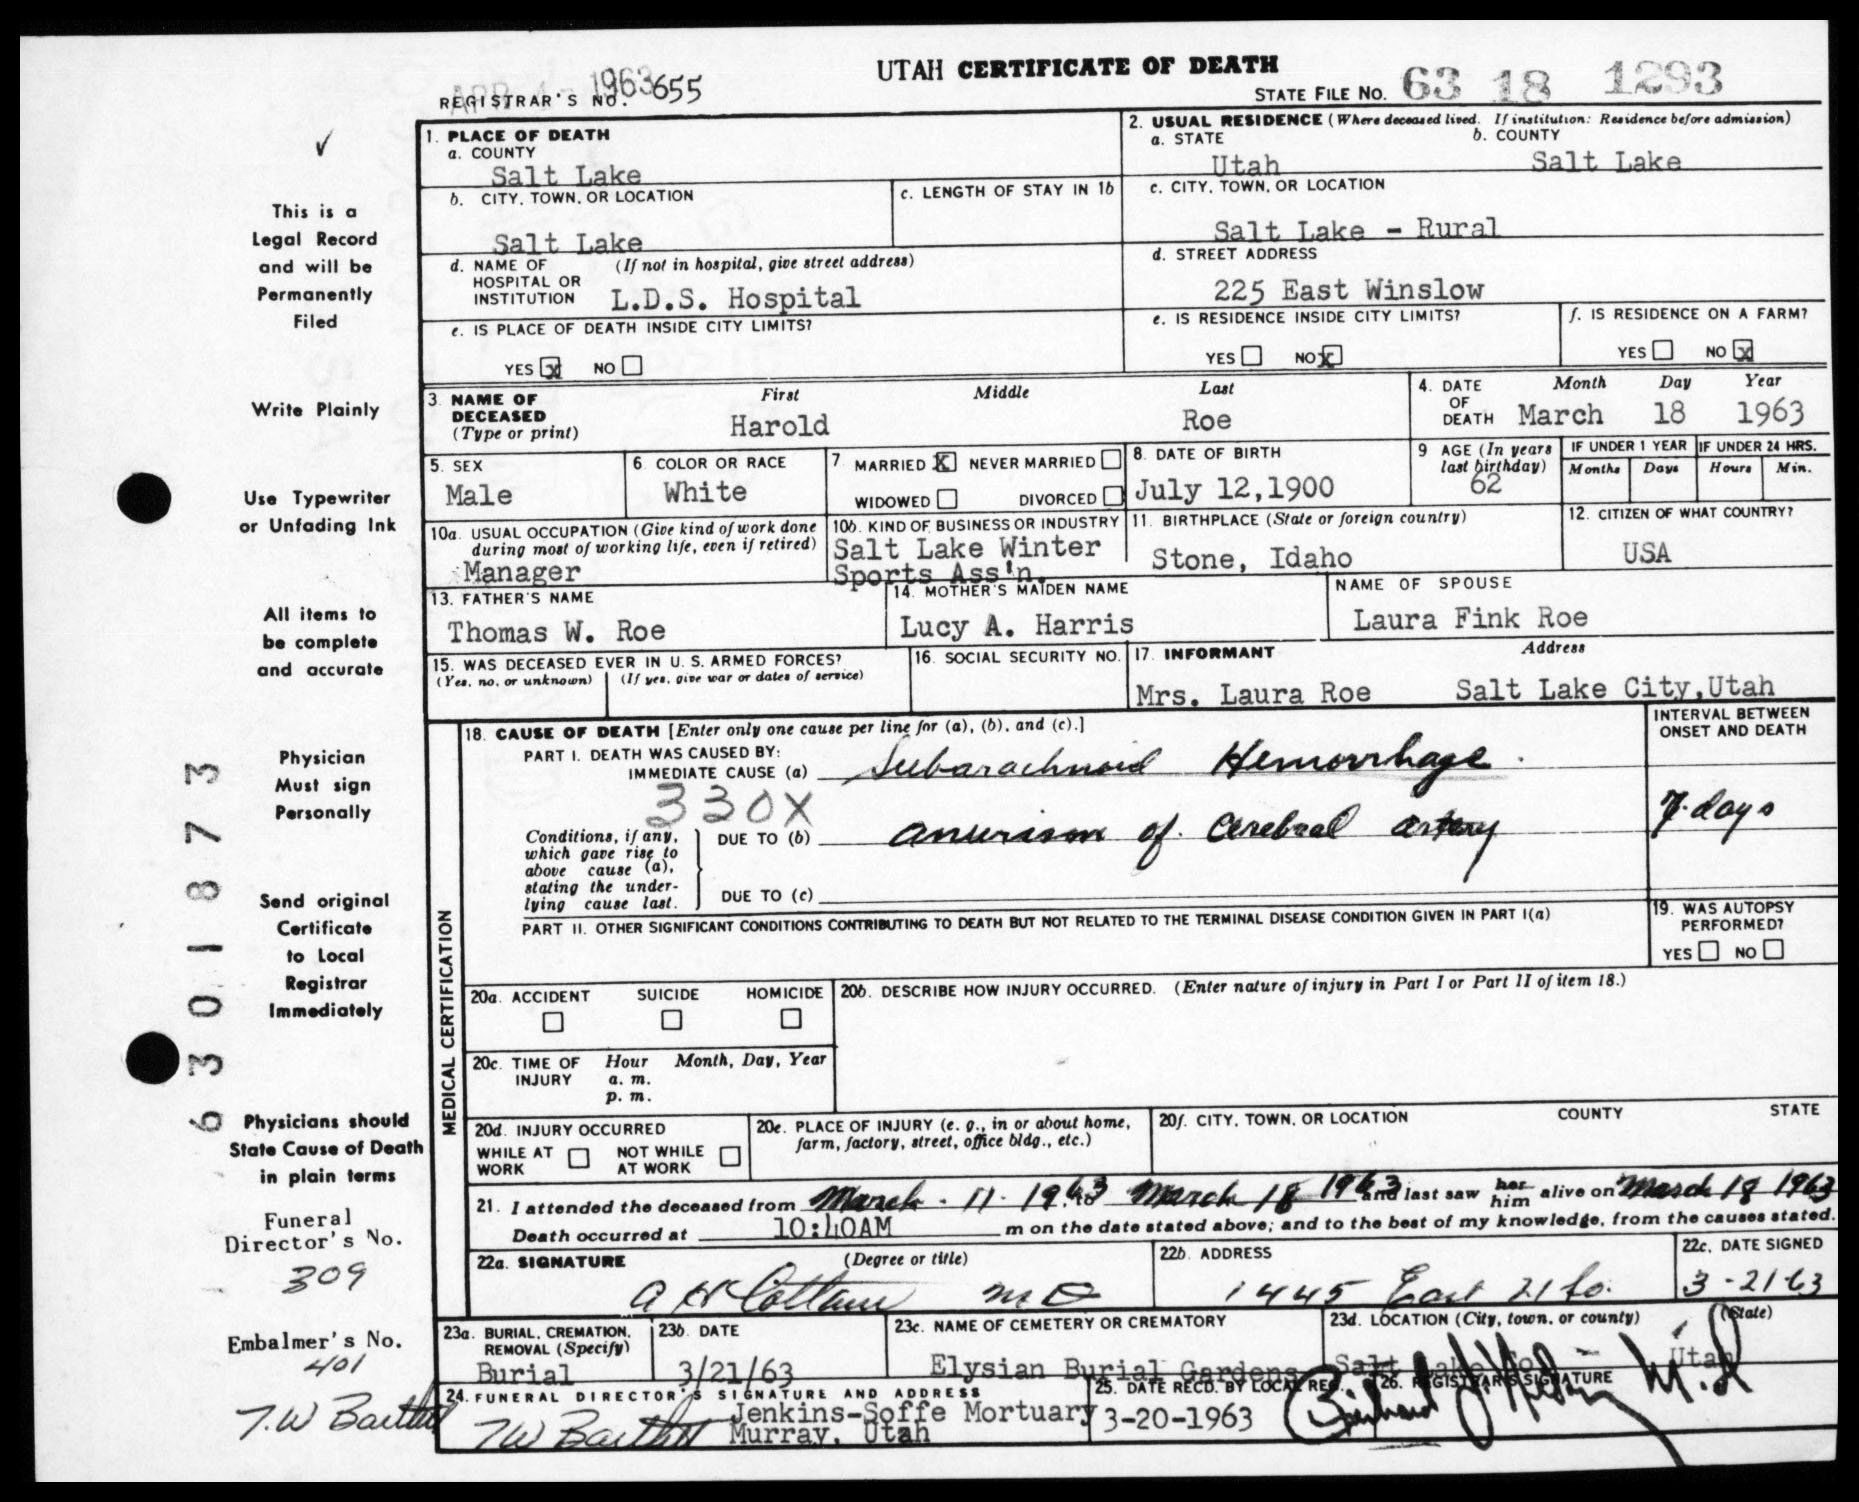 UTAH CERTIFICATE OF DEATH
APR 4 - 1963
REGISTRAR'S NO. 655
STATE FILE NO. 63 18 1293
1. PLACE OF DEATH
a. COUNTY
Salt Lake
2. USUAL RESIDENCE (Where deceased lived. If institution: Residence before admission)
a. STATE b. COUNTY
Utah Salt Lake
b. CITY, TOWN, OR LOCATION
Salt Lake
c. LENGTH OF STAY IN 1b
c. CITY, TOWN, OR LOCATION
Salt Lake - Rural
d. NAME OF HOSPITAL OR INSTITUTION (If not in hospital, give street address)
L.D.S. Hospital
d. STREET ADDRESS
225 East Winslow
e. IS PLACE OF DEATH INSIDE CITY LIMITS?
YES x NO
e. IS RESIDENCE INSIDE CITY LIMITS?
YES NO x
f. IS RESIDENCE ON A FARM?
YES NO x
3. NAME OF DECEASED (Type or print)
First Middle Last
Harold Roe
4. DATE OF DEATH
Month Day Year
March 18 1963
5. SEX
Male
6. COLOR OR RACE
White
7. MARRIED X NEVER MARRIED
WIDOWED DIVORCED
8. DATE OF BIRTH
July 12,1900
9 AGE (In years last birthday)
62
IF UNDER 1 YEAR IF UNDER 24 HRS.
Months Days Hours Min.
10a. USUAL OCCUPATION (Give kind of work done during most of working life, even if retired)
Manager
10b. KIND OF BUSINESS OR INDUSTRY
Salt Lake Winter
Sports Ass'n.
11. BIRTHPLACE (State or foreign country)
Stone, Idaho
12. CITIZEN OF WHAT COUNTRY?
USA
13. FATHER'S NAME
Thomas W. Roe
14. MOTHER'S MAIDEN NAME
Lucy A. Harris
NAME OF SPOUSE
Laura Fink Roe
15. WAS DECEASED EVER IN U. S. ARMED FORCES?
(Yes, no, or unknown) (If yes, give war or dates of service)
16. SOCIAL SECURITY NO.
17. INFORMANT Address
Mrs. Laura Roe Salt Lake City,Utah
MEDICAL CERTIFICATION
18. CAUSE OF DEATH [Enter only one cause per line for (a), (b), and (c).]
INTERVAL BETWEEN ONSET AND DEATH
PART I. DEATH WAS CAUSED BY:
IMMEDIATE CAUSE (a) Subarachnoid Hemorrhage.
330X
Conditions, if any, which gave rise to above cause (a), stating the underlying cause last.
DUE TO (b) anurism of cerebral artery
7 days
DUE TO (c)
PART II. OTHER SIGNIFICANT CONDITIONS CONTRIBUTING TO DEATH BUT NOT RELATED TO THE TERMINAL DISEASE CONDITION GIVEN IN PART I(a)
19. WAS AUTOPSY PERFORMED?
YES NO
20a. ACCIDENT SUICIDE HOMICIDE
20b. DESCRIBE HOW INJURY OCCURRED. (Enter nature of injury in Part I or Part II of item 18.)
20c. TIME OF INJURY
Hour Month, Day, Year
a. m.
p. m.
20d. INJURY OCCURRED
WHILE AT WORK NOT WHILE AT WORK
20e. PLACE OF INJURY (e. g., in or about home, farm, factory, street, office bldg., etc.)
20f. CITY, TOWN, OR LOCATION COUNTY STATE
21. I attended the deceased from March - 11 - 1963 to March 18 1963 and last saw her him alive on March 18 1963
Death occurred at 10:40AM m on the date stated above; and to the best of my knowledge, from the causes stated.
22a. SIGNATURE (Degree or title)
A H Cottam M D
22b. ADDRESS
1445 East 21 So.
22c. DATE SIGNED
3-21-63
23a. BURIAL, CREMATION, REMOVAL (Specify)
Burial
23b. DATE
3/21/63
23c. NAME OF CEMETERY OR CREMATORY
Elysian Burial Gardens
23d. LOCATION (City, town, or county) (State)
Salt Lake Co. Utah
24. FUNERAL DIRECTOR'S SIGNATURE AND ADDRESS
TW Bartlett Jenkins-Soffe Mortuary
Murray, Utah
25. DATE RECD. BY LOCAL REG.
3-20-1963
26. REGISTRAR'S SIGNATURE
M.D
This is a
Legal Record
and will be
Permanently
Filed
Write Plainly
Use Typewriter
or Unfading Ink
All items to
be complete
and accurate
Physician
Must sign
Personally
Send original
Certificate
to Local
Registrar
Immediately
Physicians should
State Cause of Death
in plain terms
Funeral
Director's No.
309
Embalmer's No.
401
T.W Bartlett
6301873